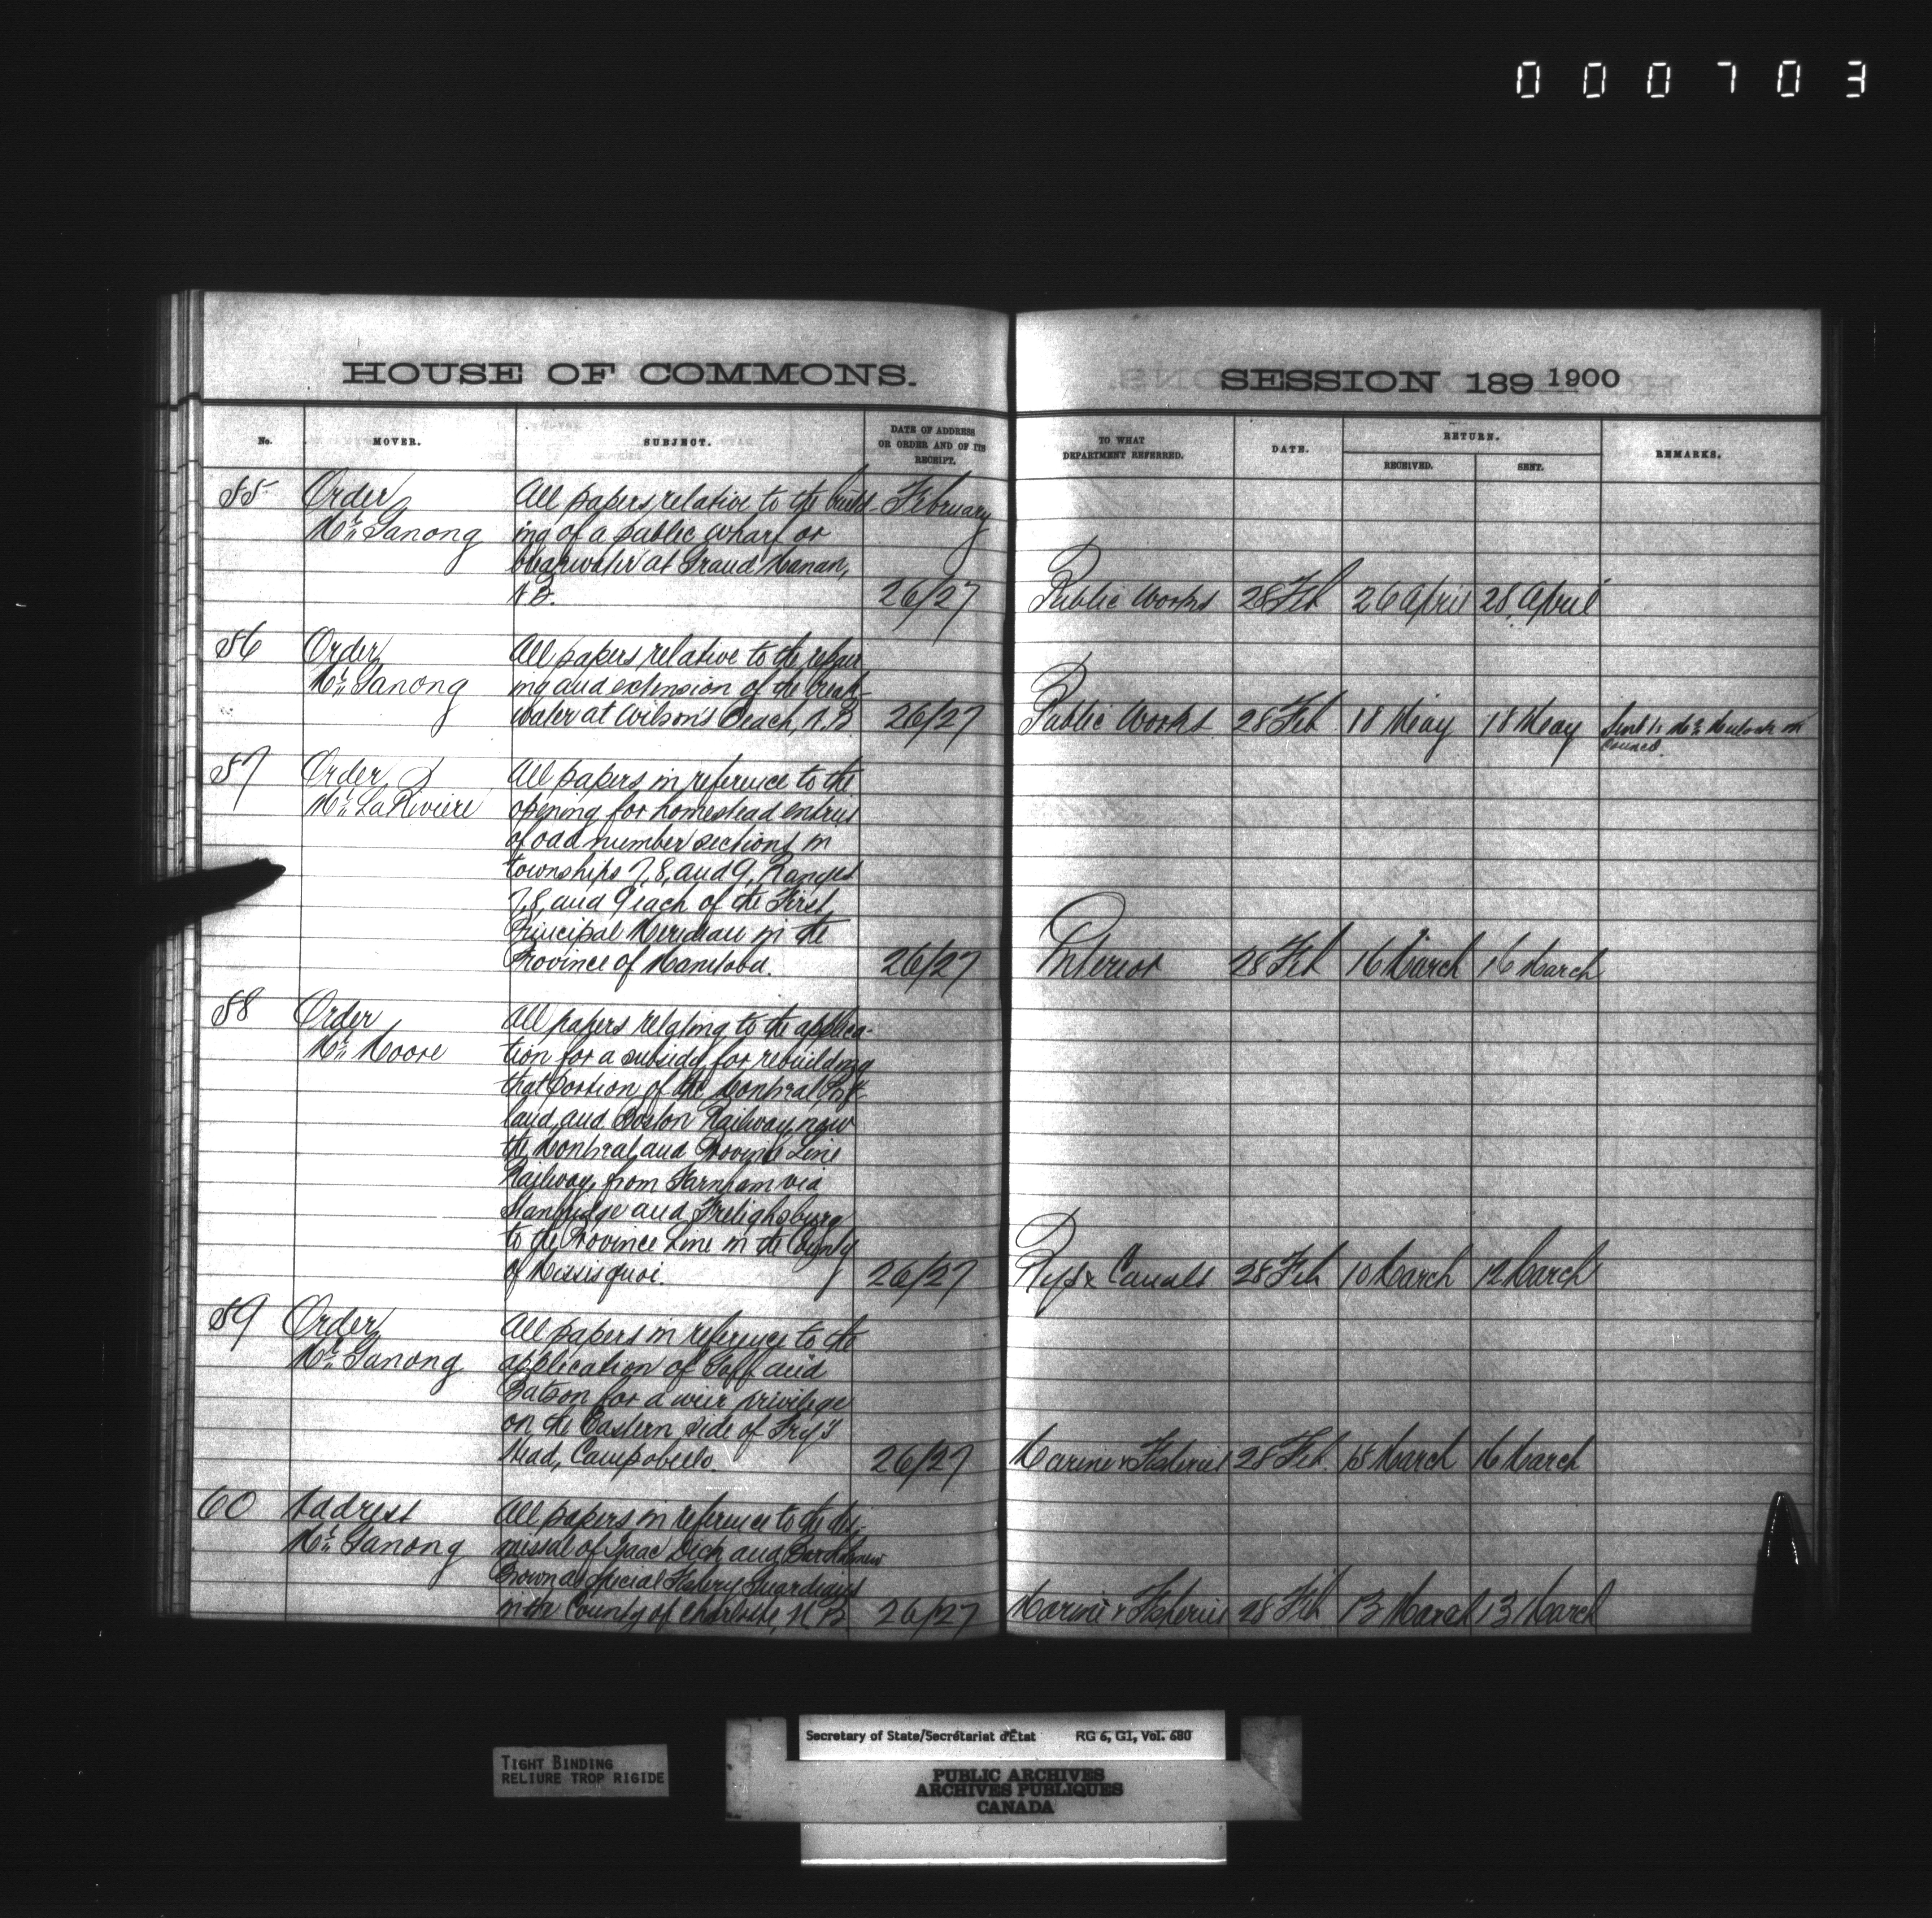 000703
HOUSE OF COMMONS.
SESSION 189 1900
No.
MOVER.
SUBJECT.
DATE OF ADDRESS
OR ORDER AND OF ITS
RECEIPT.
TO WHAT
DEPARTMENT REFERRED.
DATE.
RETURN.
RECEIVED.
SENT.
REMARKS.
55 Order All papers relative to the build- February
Mr. Ganong ing of a public wharf or
breakwater at Grand Manan,
N.B. 26/27 Public Works 28 Feb 26 April 28 April
56 Order All papers relative to the repair
Mr. Ganong ing and extension of the break-
water at Wilson's Beach, N.B. 26/27 Public Works 28 Feb 18 May 18 May Sent to Mr. Mulock in
Council
57 Order All papers in reference to the
Mr. LaRiviere opening for homestead entries
of odd number sections in
townships 7, 8, and 9, Ranges
7, 8, and 9 each of the First
Principal Meridian in the
Province of Manitoba. 26/27 Interior 28 Feb 16 March 16 March
58 Order All papers relating to the applica-
Mr. Moore tion for a subsidy for rebuilding
that portion of the Montreal, Port-
land and Boston Railway, now
the Montreal and Province Line
Railway, from Farnham via
Stanbridge and Frelighsburg
to the Province Line in the County
of Missisquoi. 26/27 Rys & Canals 28 Feb 10 March 12 March
59 Order All papers in reference to the
Mr. Ganong application of Goff and
Batson for a weir privilege
on the Eastern side of Fry's
Head, Campobello. 26/27 Marine & Fisheries 28 Feb. 15 March 16 March
60 Address All papers in reference to the dis-
Mr. Ganong missal of Isaac Dick and Bartholomew
Brown as special Fishery Guardians
in the County of Charlotte, N.B. 26/27 Marine & Fisheries 28 Feb 13 March 13 March
Secretary of State/Secrétariat d'État RG 6, G1, Vol. 680
TIGHT BINDING
RELIURE TROP RIGIDE
PUBLIC ARCHIVES
ARCHIVES PUBLIQUES
CANADA